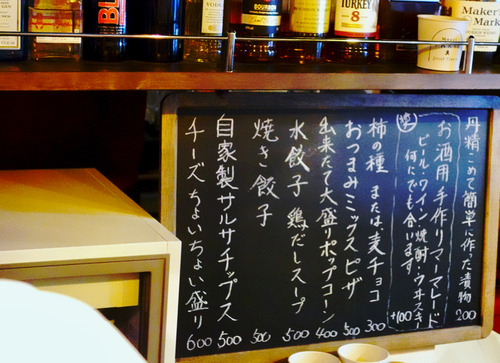 BL
VODKA
BOURBON
TURKEY
8
Maker's
Mark
Maker
Mark
丹精こめて簡単に作った漬物 200
お酒用手作りマーマレード
ビール・ワイン・焼酎・ウヰスキー
何にでも合います。 +100
柿の種 または麦チョコ 300
おつまみミックスピザ 500
出来たて大盛りポップコーン 400
水餃子 鶏だしスープ 500
焼き餃子 500
自家製サルサチップス 500
チーズちょいちょい盛り 600